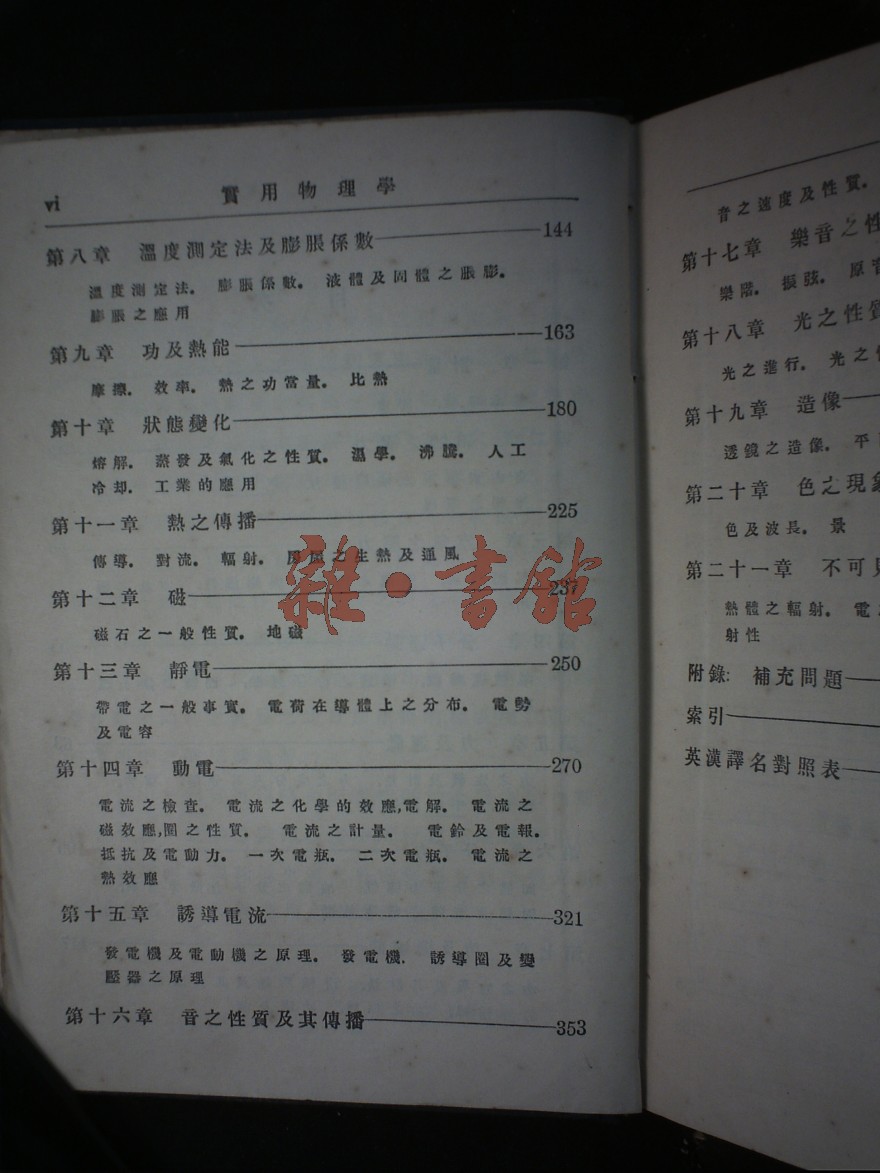 vi 實用物理學
第八章 溫度測定法及膨脹係數 144
溫度測定法. 膨脹係數. 液體及固體之脹膨.
膨脹之應用
第九章 功及熱能 163
摩擦. 效率. 熱之功當量. 比熱
第十章 狀態變化 180
熔解. 蒸發及氣化之性質. 濕學. 沸騰. 人工
冷却. 工業的應用
第十一章 熱之傳播 225
傳導. 對流. 輻射. 房屋之生熱及通風
第十二章 磁 237
磁石之一般性質. 地磁
第十三章 靜電 250
帶電之一般事實. 電荷在導體上之分布. 電勢
及電容
第十四章 動電 270
電流之檢查. 電流之化學的效應,電解. 電流之
磁效應,圈之性質. 電流之計量. 電鈴及電報.
抵抗及電動力. 一次電瓶. 二次電瓶. 電流之
熱效應
第十五章 誘導電流 321
發電機及電動機之原理. 發電機. 誘導圈及變
壓器之原理
第十六章 音之性質及其傳播 353
音之速度及性質.
第十七章 樂音之性
樂階. 振弦. 原音
第十八章 光之性質
光之進行. 光之
第十九章 造像
透鏡之造像. 平
第二十章 色之現象
色及波長. 景
第二十一章 不可見
熱體之輻射. 電
射性
附錄: 補充問題
索引
英漢譯名對照表
雜·書館